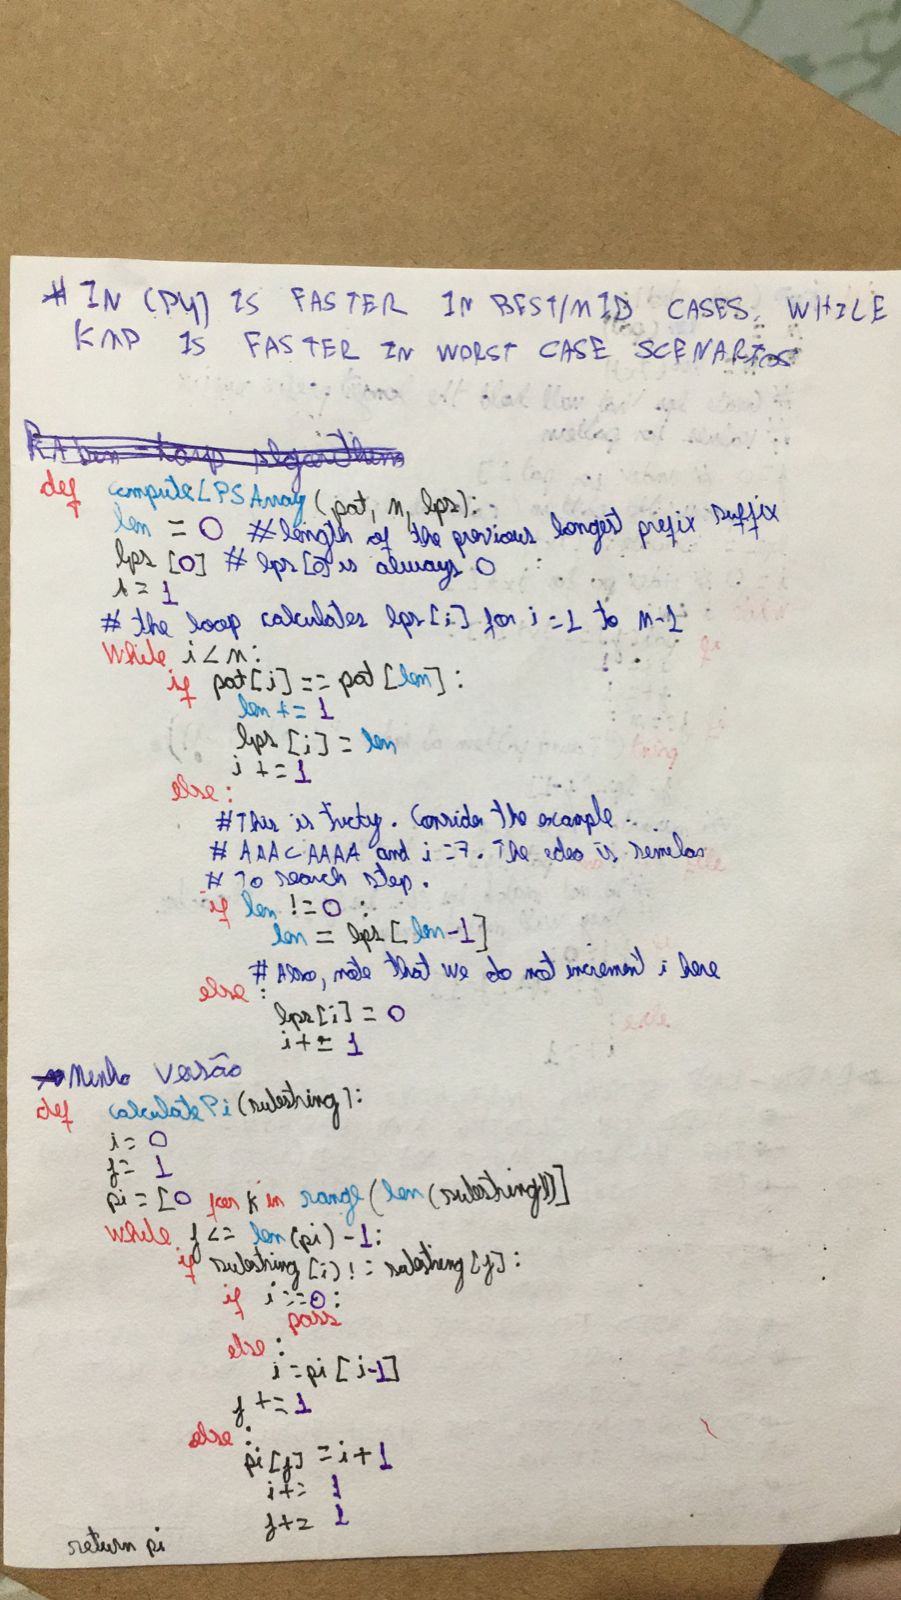 # IN (PY) IS FASTER IN BEST/MID CASES, WHILE
KMP IS FASTER IN WORST CASE SCENARIOS
Rabin-Karp algorithm
def computeLPSArray(pat, m, lps):
len = 0 #length of the previous longest prefix suffix
lps [0] # lps[0] is always 0
i = 1
# the loop calculates lps[i] for i = 1 to m-1
While i < m:
if pat[i] == pat[len]:
len += 1
lps[i] = len
i += 1
else:
#This is tricky. Consider the example.
# AAACAAAA and i = 7. The idea is similar
# To search step.
if len != 0 :
len = lps[len-1]
# Also, note that we do not increment i here
else :
lps[i] = 0
i += 1
Minha versão
def calculatePi(substring):
i = 0
j = 1
pi = [0 for k in range(len(substring))]
While j <= len(pi) - 1:
if substring[i] != substring[j]:
if i == 0:
pass
else:
i = pi[i-1]
j += 1
else:
pi[j] = i + 1
i += 1
j += 1
return pi